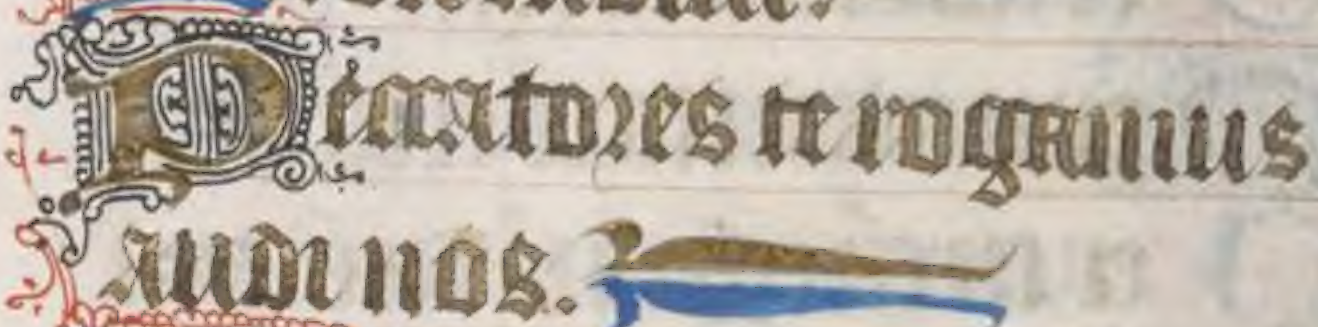 Peccatores te rogamus
audi nos.